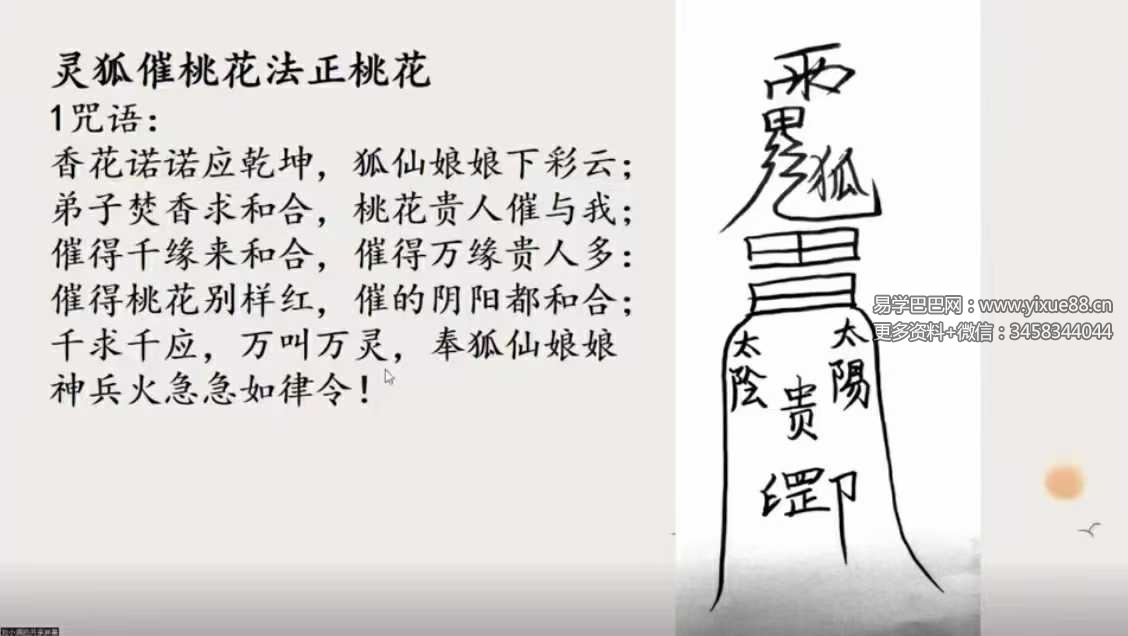 灵狐催桃花法正桃花
1咒语：
香花诺诺应乾坤，狐仙娘娘下彩云；
弟子焚香求和合，桃花贵人催与我；
催得千缘来和合，催得万缘贵人多：
催得桃花别样红，催的阴阳都和合；
千求千应，万叫万灵，奉狐仙娘娘
神兵火急急如律令！
狐
易学巴巴网：www.yixue88.cn
更多资料+微信：3458344044
太陰
太陽
贵